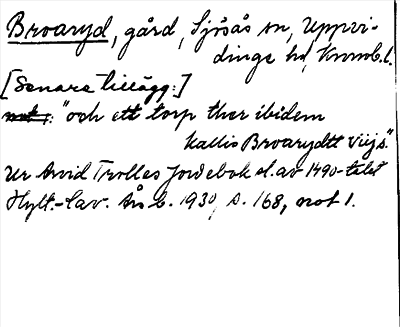 Broaryd, gård, Sjösås sn, Uppvi-
dinge hd, Kronob. l.
[Senare tillägg:]
not 1: "och ett torp ther ibidem
kallis Broarydtt viijs."
Ur Arvid Trolles Jordebok sl. av 1490-talet
Hylt.-Cav. Års b. 1930, s. 168, not 1.